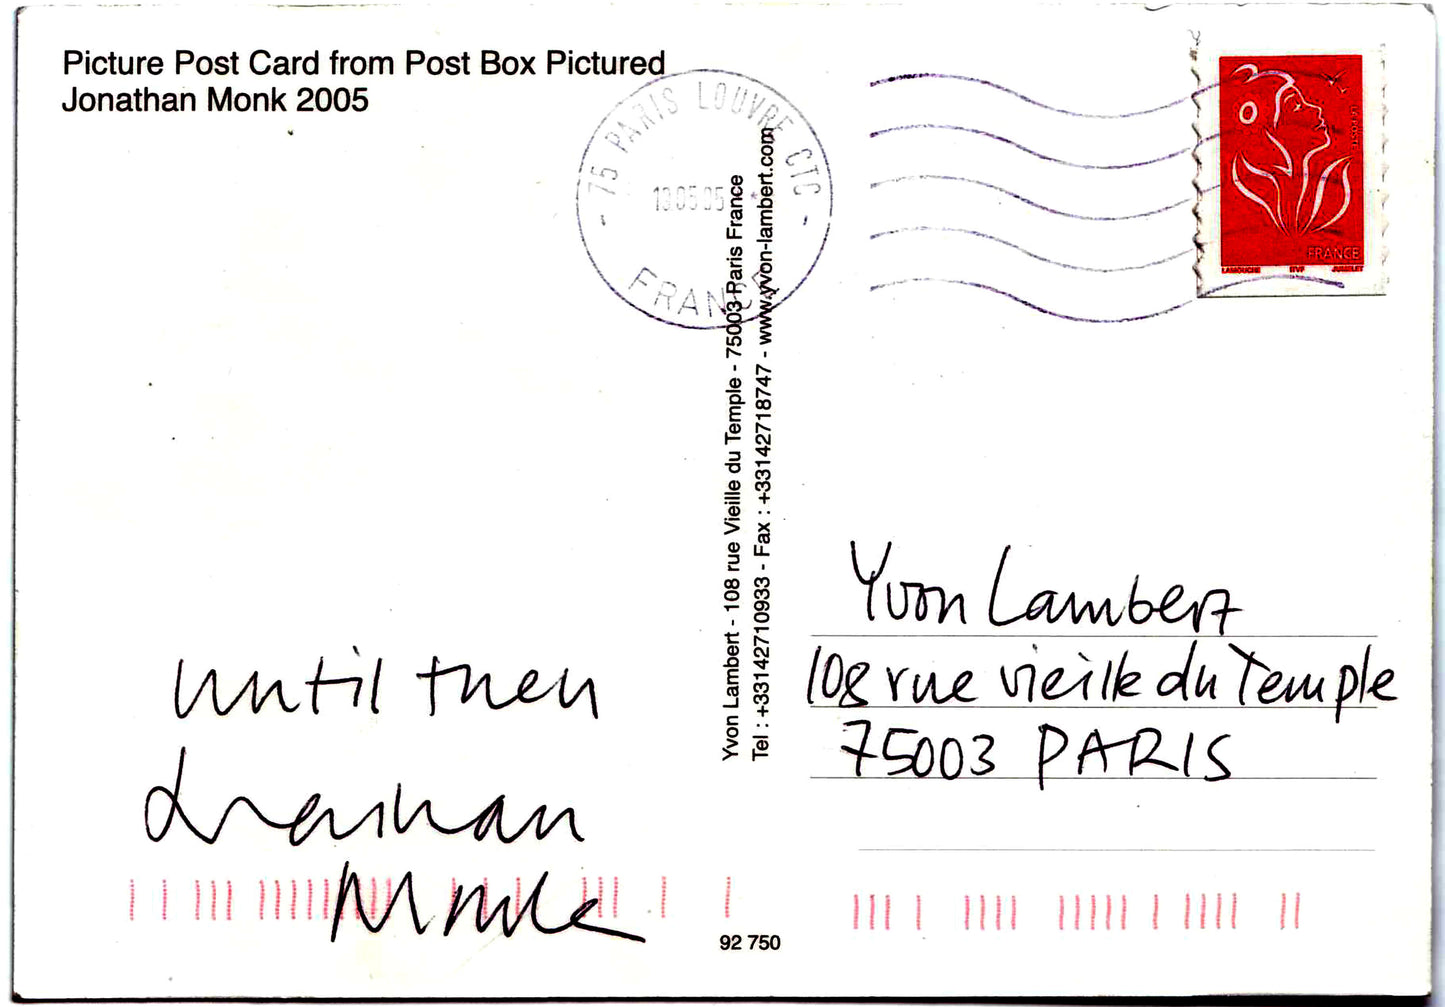 Picture Post Card from Post Box Pictured
Jonathan Monk 2005
- 75 PARIS LOUVRE CTC -
13 05 05
FRANCE
FRANCE
LAMOUCHE ITVF JUMELET
Yvon Lambert - 108 rue Vieille du Temple - 75003 Paris France
Tel : +33142710933 - Fax : +33142718747 - www.yvon-lambert.com
until then
Jonathan
Monk
Yvon Lambert
108 rue vieille du Temple
75003 PARIS
92 750